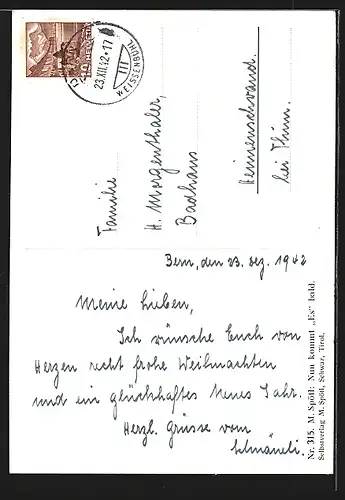 23.XII.42-17
III
WEISSENBÜHL
HELVETIA
10
Familie
H. Morgenthaler,
Badhaus
Heimenschwand.
bei Thun.
Bern, den 23. Dez. 1942
Meine Lieben,
Ich wünsche Euch von
Herzen recht frohe Weihnachten
und ein glückhaftes Neues Jahr.
Herzl. Grüsse vom
Nr. 315. M. Spötl: Nun kommt „Es" bald.
Selbstverlag M. Spötl, Schwaz, Tirol.